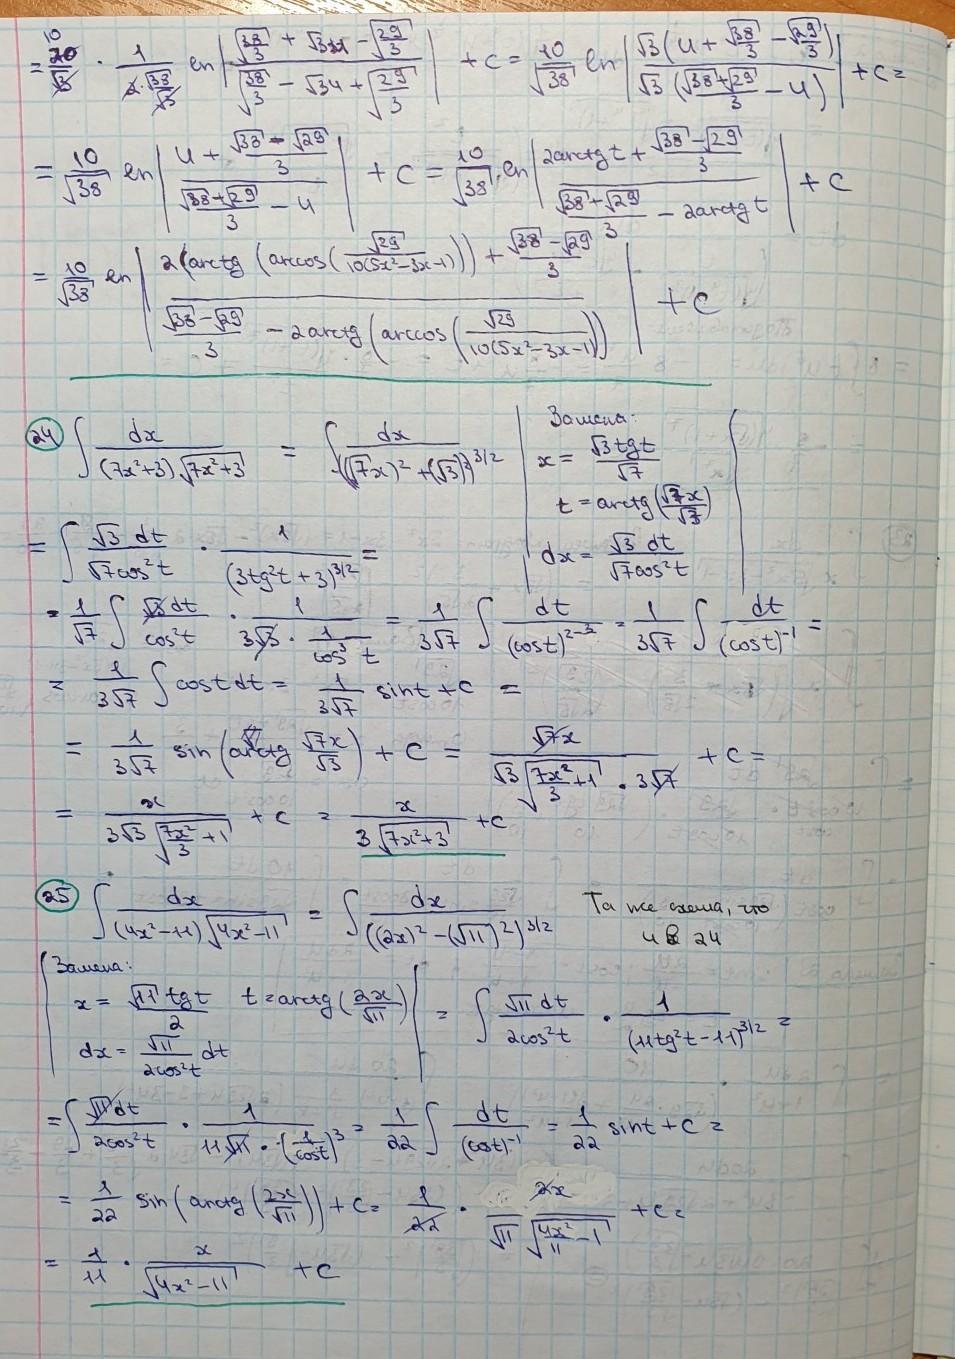 = 10 20/√3 · 1/(2·√38/√3) ln |(√38/3 + √3u − √29/3)/(√38/3 − √3u + √29/3)| + C = 10/√38 ln |√3(u + √38/3 − √29/3)/(√3((√38+√29)/3 − u))| + C =
= 10/√38 ln |(u + (√38 − √29)/3)/((√38+√29)/3 − u)| + C = 10/√38 · ln |(2arctg t + (√38 − √29)/3)/((√38+√29)/3 − 2arctg t)| + C
= 10/√38 ln |(2(arctg(arccos(√29/(10(5x²−3x−1)))) + (√38−√29)/3)/((√38−√29)/3 − 2arctg(arccos(√29/(10(5x²−3x−1)))))| + C
24 ∫ dx/((7x²+3)√(7x²+3)) = ∫ dx/((√7x)² + (√3)²)^(3/2)
Замена:
x = √3 tg t/√7
t = arctg(√7x/√3)
dx = √3 dt/(√7cos²t)
= ∫ √3 dt/(√7cos²t) · 1/(3tg²t + 3)^(3/2) =
= 1/√7 ∫ √3dt/cos²t · 1/(3√3 · 1/cos³t) = 1/(3√7) ∫ dt/(cost)^(2−3) = 1/(3√7) ∫ dt/(cost)^(−1) =
= 1/(3√7) ∫ cost dt = 1/(3√7) sint + C =
= 1/(3√7) sin(arctg √7x/√3) + C = √7x/(√3 √(7x²/3 + 1) · 3√7) + C =
= x/(3√3 √(7x²/3 + 1)) + C = x/(3√(7x²+3)) + C
25 ∫ dx/((4x²−11)√(4x²−11)) = ∫ dx/((2x)² − (√11)²)^(3/2)
Та же схема, что
и в 24
Замена:
x = √11 tgt/2 t = arctg(2x/√11)
dx = √11/(2cos²t) dt
= ∫ √11 dt/(2cos²t) · 1/(11tg²t − 11)^(3/2) =
= ∫ √11dt/(2cos²t) · 1/(11√11 · (1/cost)³) = 1/22 ∫ dt/(cost)^(−1) = 1/22 sint + C =
= 1/22 sin(arctg(2x/√11)) + C = 1/22 · 2x/(√11 √(4x²/11 − 1)) + C =
= 1/11 · x/√(4x²−11) + C